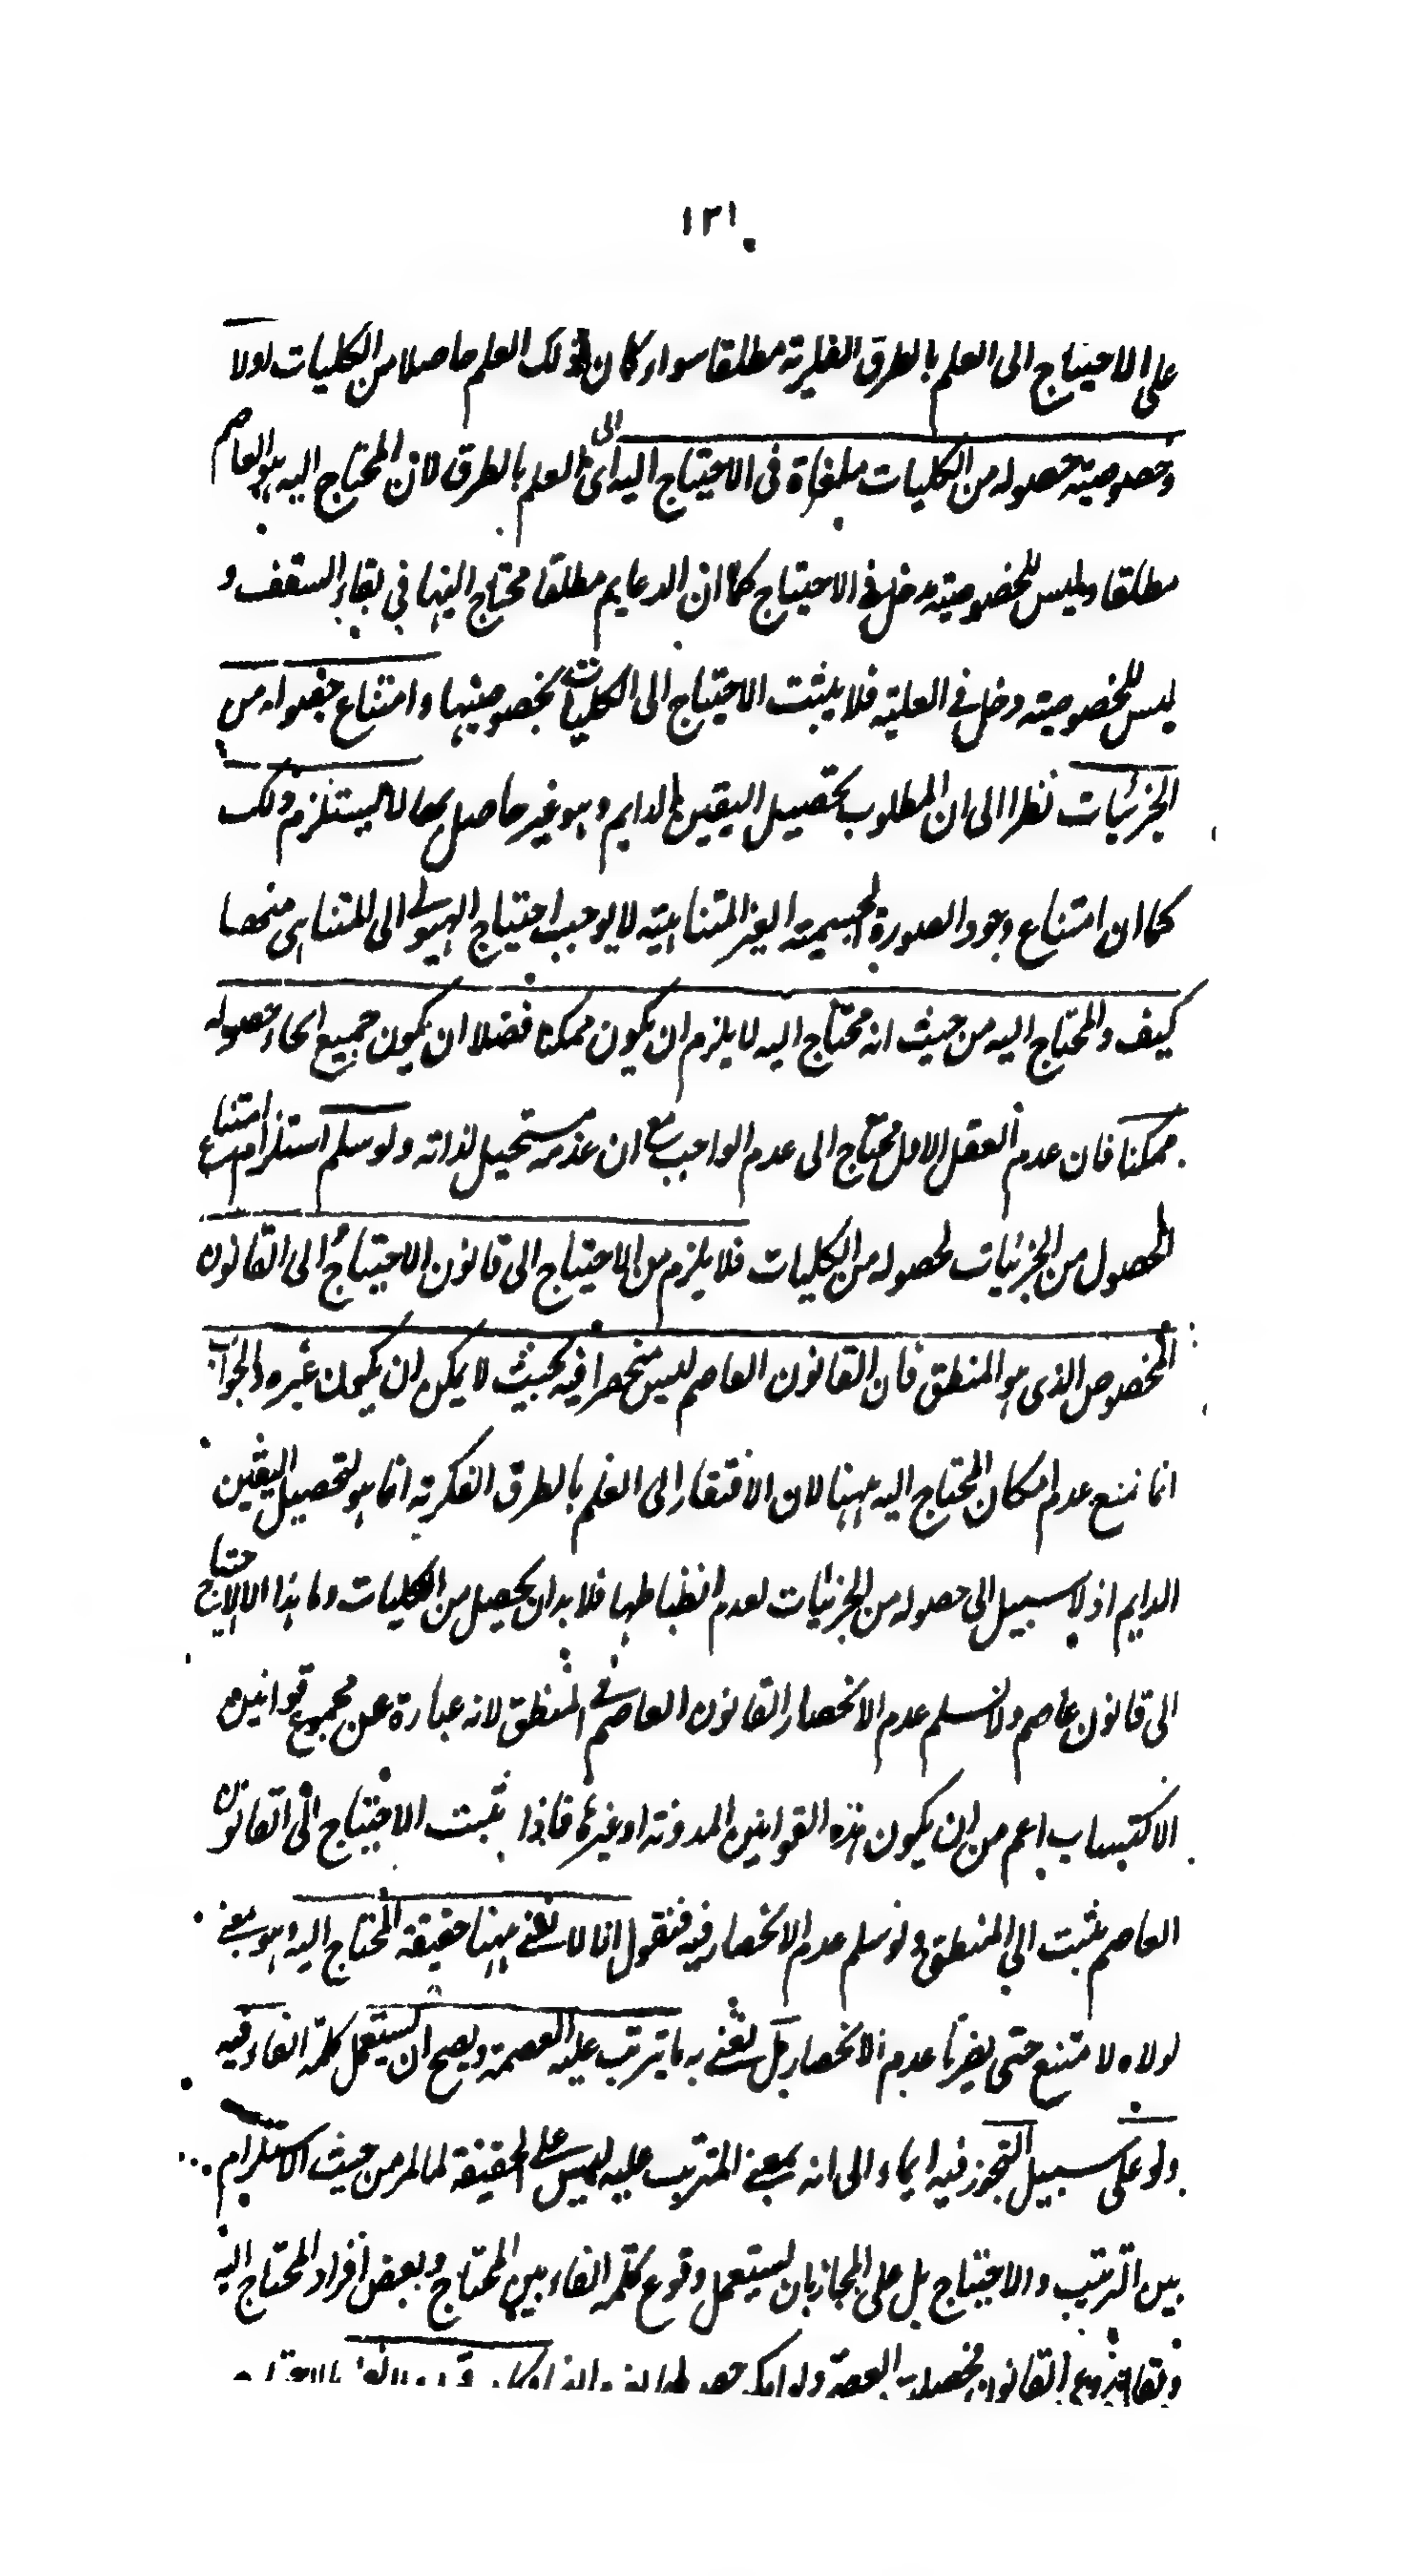 ١٢١
على الاحتياج الى العلم بالطرق الفكرية مطلقا سواء كان ذلك العلم حاصلا من الكليات اولا
وخصوصية حصوله من الكليات ملغاة فى الاحتياج اليه اى الى العلم بالطرق لان المحتاج اليه هو العاصم
مطلقا وليس للخصوصية مدخل فى الاحتياج كما ان الدعايم مطلقا محتاج اليها فى بقاء السقف و
ليس للخصوصية دخل فى العلية فلا يثبت الاحتياج الى الكليات بخصوصيتها وامتناع حصوله من
الجزئيات نظرا الى ان المطلوب تحصيل اليقين الدايم وهو غير حاصل بها لا يستلزم ذلك
كما ان امتناع وجود الصورة الجسمية الغير المتناهية لا يوجب احتياج الهيولى الى المتناهى منها
كيف والمحتاج اليه من حيث انه محتاج اليه لا يلزم ان يكون ممكنا فضلا ان يكون جميع انحاء حصوله
ممكنا فان عدم العقل الاول محتاج الى عدم الواجب مع ان عدمه مستحيل لذاته ولو سلم استلزام امتناع
الحصول من الجزئيات لحصوله من الكليات فلا يلزم من الاحتياج الى قانون الاحتياج الى القانون
المخصوص الذى هو المنطق فان القانون العاصم ليس منحصرا فيه بحيث لا يمكن ان يكون غيره والجواب
انا نمنع عدم امكان المحتاج اليه ههنا لان الافتقار الى العلم بالطرق الفكرية انما هو لتحصيل اليقين
الدايم اذ لا سبيل الى حصوله من الجزئيات لعدم انضباطها فلا بد ان يحصل من الكليات وما هذا الا الاحتياج
الى قانون عاصم ولا نسلم عدم الانحصار القانون العاصم فى المنطق لانه عبارة عن مجموع قوانين
الاكتساب اعم من ان يكون هذه القوانين المدونة او غيرها فاذا ثبت الاحتياج الى القانون
العاصم ثبت الى المنطق ولو سلم عدم الانحصار فيه فنقول انا لا نعنى ههنا حقيقة المحتاج اليه وهو معنى
لولاه لامتنع حتى يضرنا عدم الانحصار بل نعنى به ما يترتب عليه العصمة ويصح ان يستعمل كلمة الفاء فيه
ولو على سبيل التجوز فيه ايماء الى انه بمعنى المترتب عليه ليس على الحقيقة لما مر من حيث الاستلزام
بين الترتيب والاحتياج بل على المجاز بان يستعمل وقوع كلمة الفاء بين المحتاج وبعض افراد المحتاج اليه